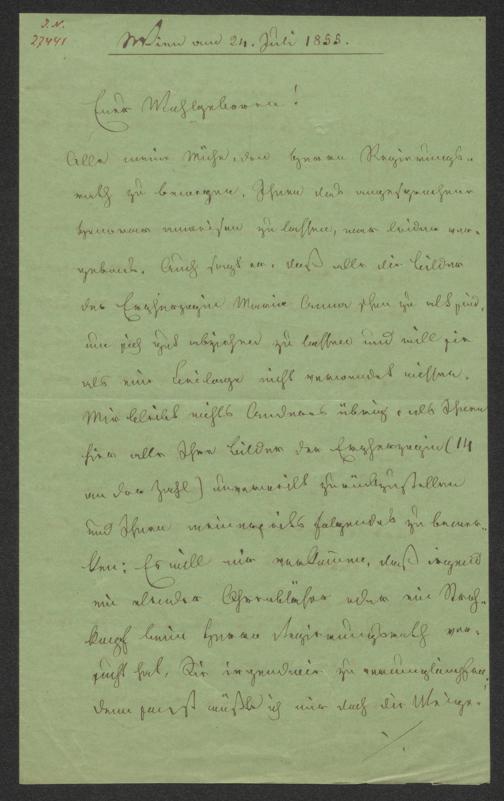 J. N.
27441
Wien am 24. Juli 1855.
Euer Wohlgeboren!
Alle meine Mühe, den Herrn Regierungs-
rath zu bewegen, Ihnen das angesprochene
Honorar anweisen zu lassen, war leider ver-
gebens. Auch sagt er, daß alle die Bilder
der Erzherzogin Maria Anna schon zu alt sind,
um sich gut abziehen zu lassen und will sie
als eine Beilage nicht verwendet wissen.
Mir bleibt nichts Anderes übrig, als Ihnen
hier alle Ihre Bilder der Erzherzogin (14
an der Zahl) unverweilt zurückzustellen
und Ihnen meinerseits folgendes zu bemer-
ken: Es will mir vorkommen, daß irgend
ein elender Ohrenbläser oder ein Stroh-
kopf beim Herrn Regierungsrath ver-
sucht hat, Sie irgendwie zu verunglimpfen,
denn sonst müßte ich mir doch die Weige-